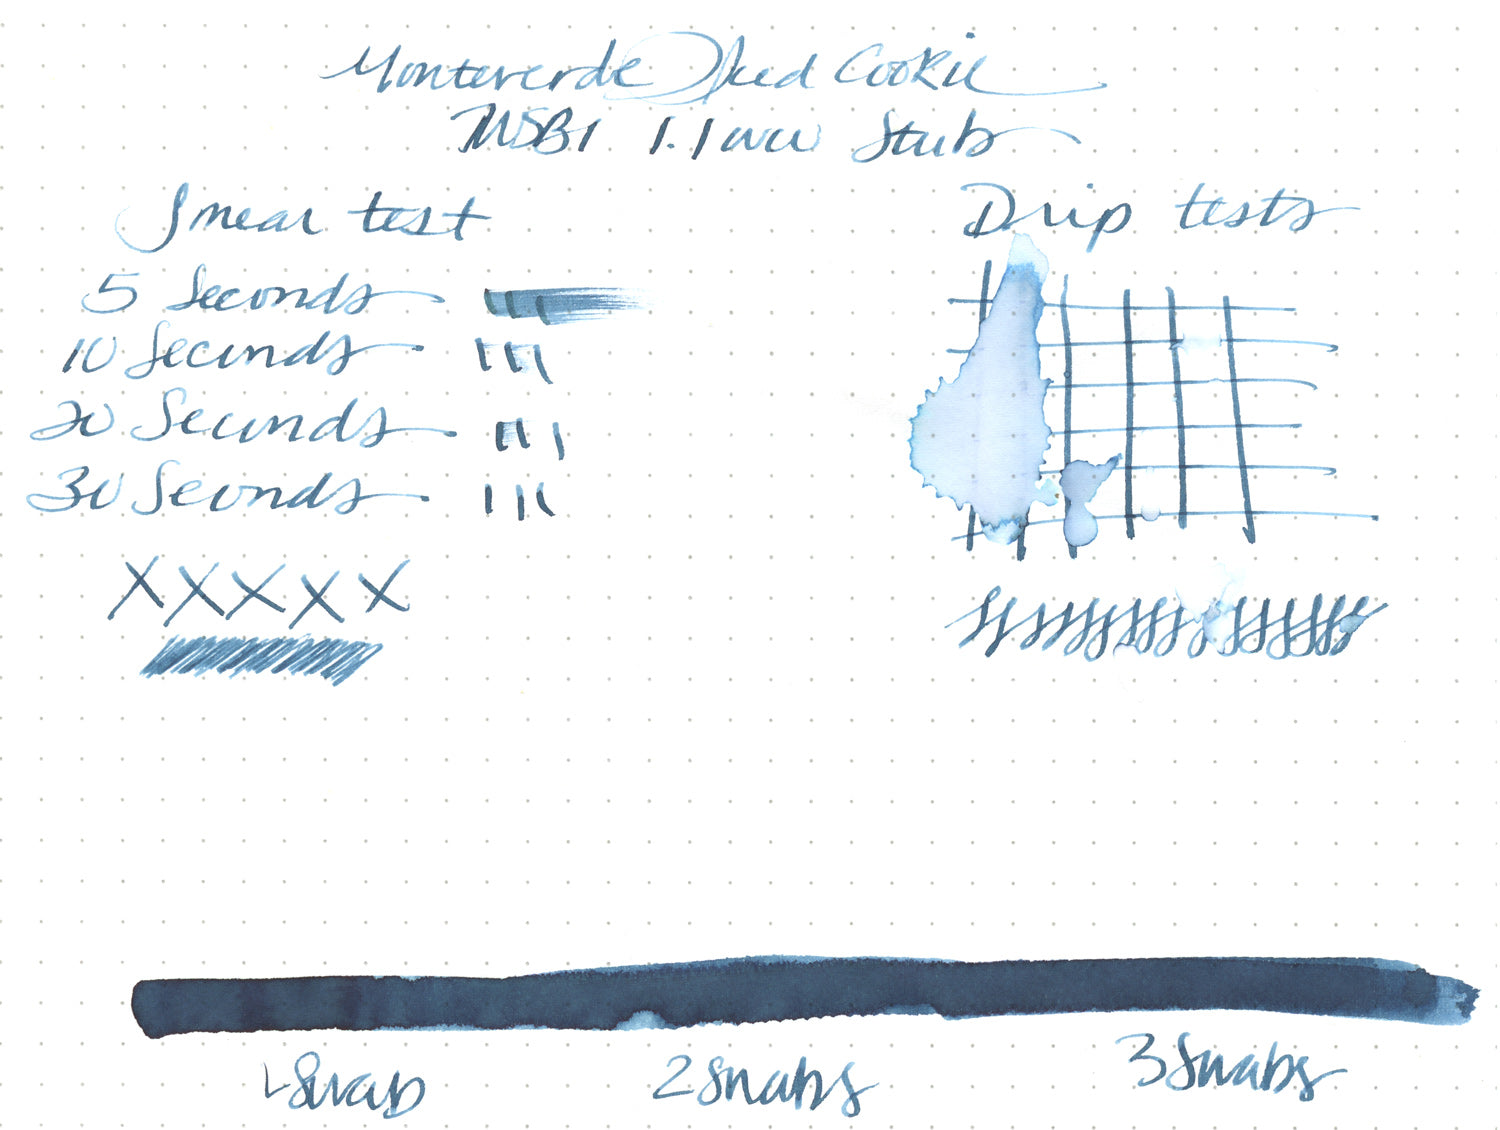 Monteverde Iced Cookie
TWSBI 1.1mm Stub
Smear test
5 Seconds
10 Seconds
20 Seconds
30 Seconds
XXXXX
Drip tests
1 Swab
2 Swabs
3 Swabs